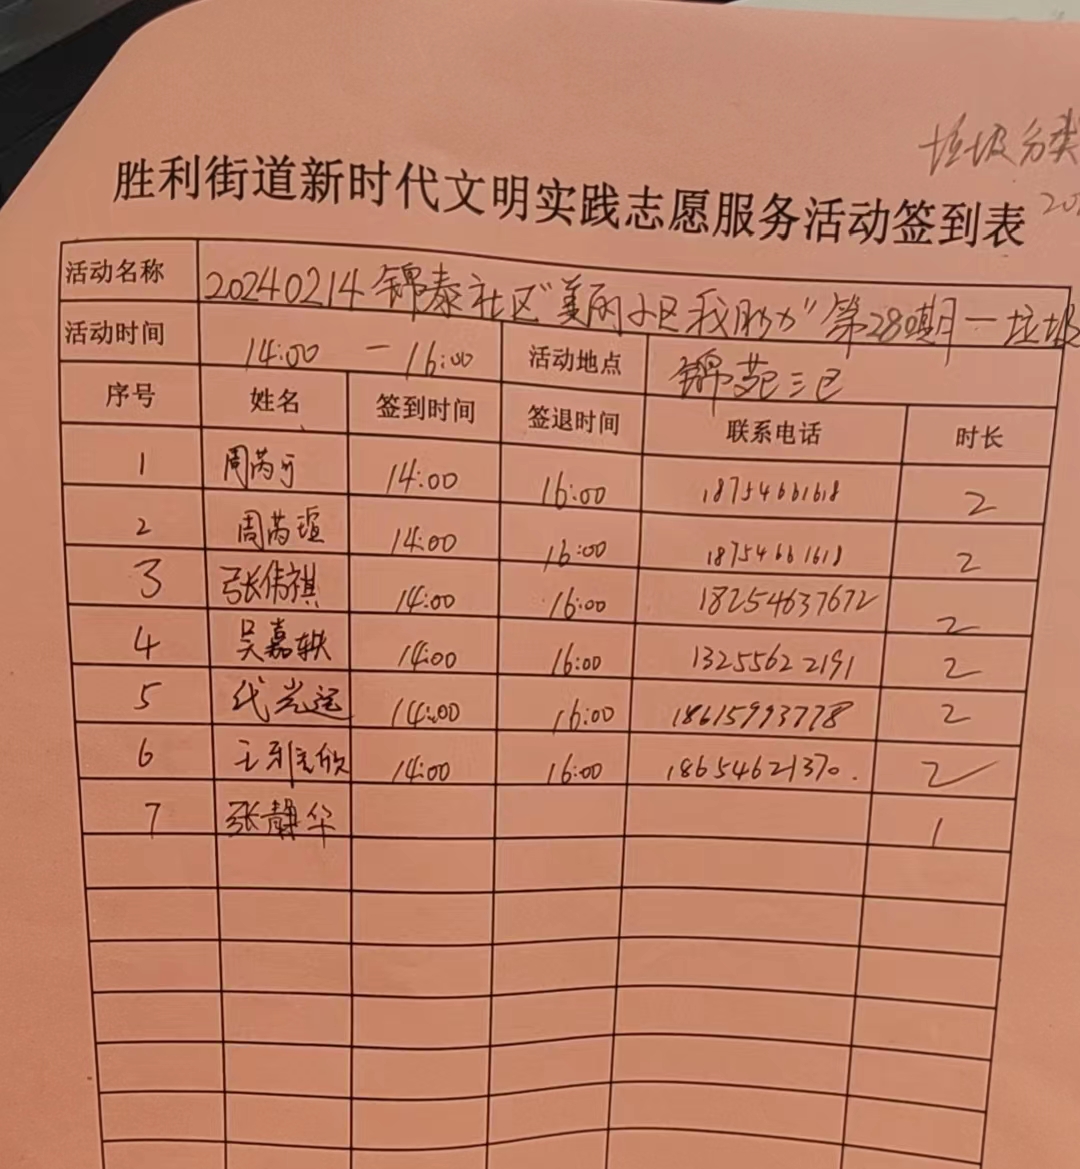 垃圾分类
20
胜利街道新时代文明实践志愿服务活动签到表
活动名称 20240214锦泰社区"美丽小区我助力"第280期一垃圾
活动时间 14:00 — 16:00 活动地点 锦苑三区
序号 姓名 签到时间 签退时间 联系电话 时长
1 周芮可 14:00 16:00 18754661618 2
2 周芮瑄 14:00 16:00 18754661618 2
3 张伟祺 14:00 16:00 18254637672 2
4 吴嘉轶 14:00 16:00 13255622191 2
5 代光运 14:00 16:00 18615993778 2
6 王雅欣 14:00 16:00 18654621370. 2
7 张静华 1